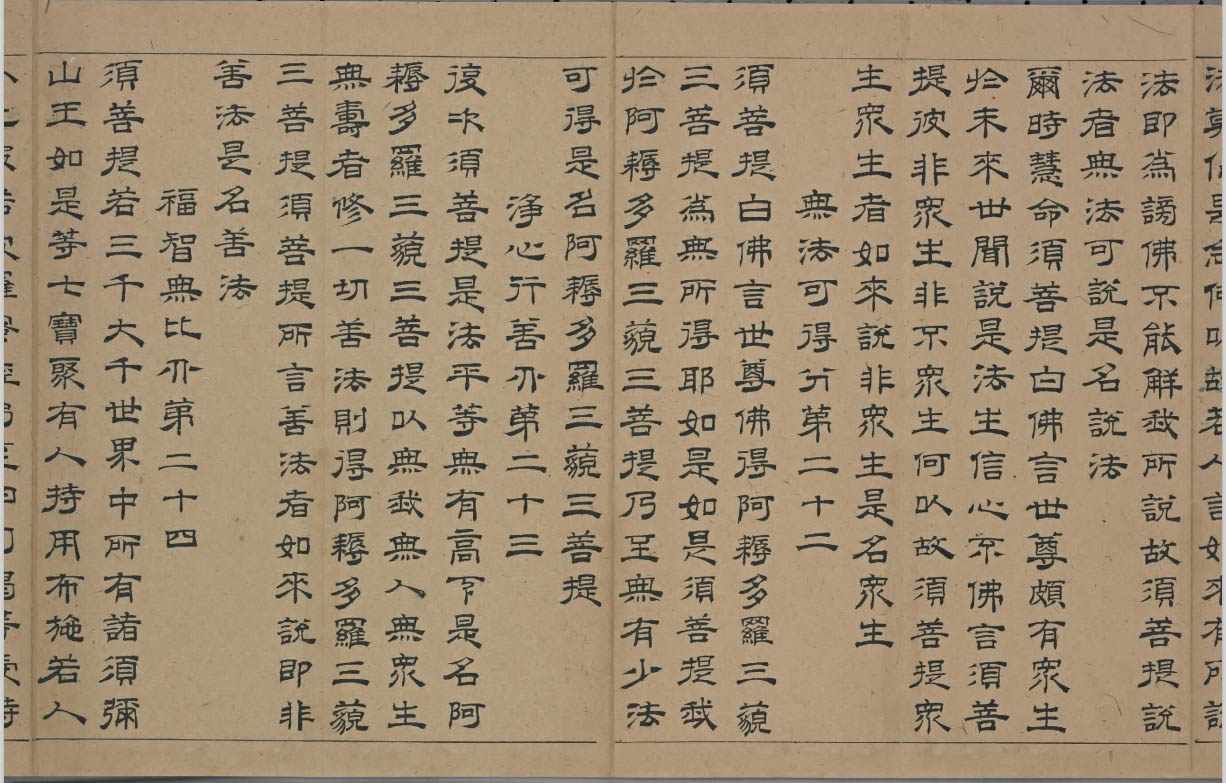 法莫作是念何以故若人言如來有所說
法即為謗佛不能解我所說故須菩提說
法者無法可說是名說法
爾時慧命須菩提白佛言世尊頗有眾生
於未來世聞說是法生信心不佛言須菩
提彼非眾生非不眾生何以故須菩提眾
生眾生者如來說非眾生是名眾生
無法可得分第二十二
須菩提白佛言世尊佛得阿耨多羅三藐
三菩提為無所得耶如是如是須菩提我
於阿耨多羅三藐三菩提乃至無有少法
可得是名阿耨多羅三藐三菩提
淨心行善分第二十三
復次須菩提是法平等無有高下是名阿
耨多羅三藐三菩提以無我無人無眾生
無壽者修一切善法則得阿耨多羅三藐
三菩提須菩提所言善法者如來說即非
善法是名善法
福智無比分第二十四
須菩提若三千大千世界中所有諸須彌
山王如是等七寶聚有人持用布施若人